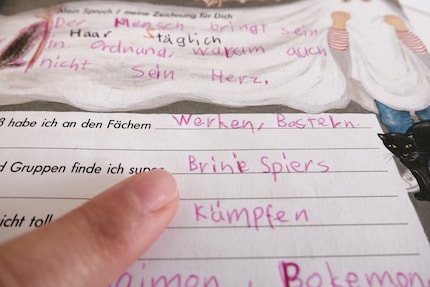 Mein Spruch / meine Zeichnung für Dich
Der Mensch bringt sein
Haar täglich
in Ordnund, warum auch
nicht sein Herz.
ß habe ich an den Fächern Werken, Basteln.
d Gruppen finde ich super Brinie Spiers
nicht toll Kämpfen
aimon, Bokemon